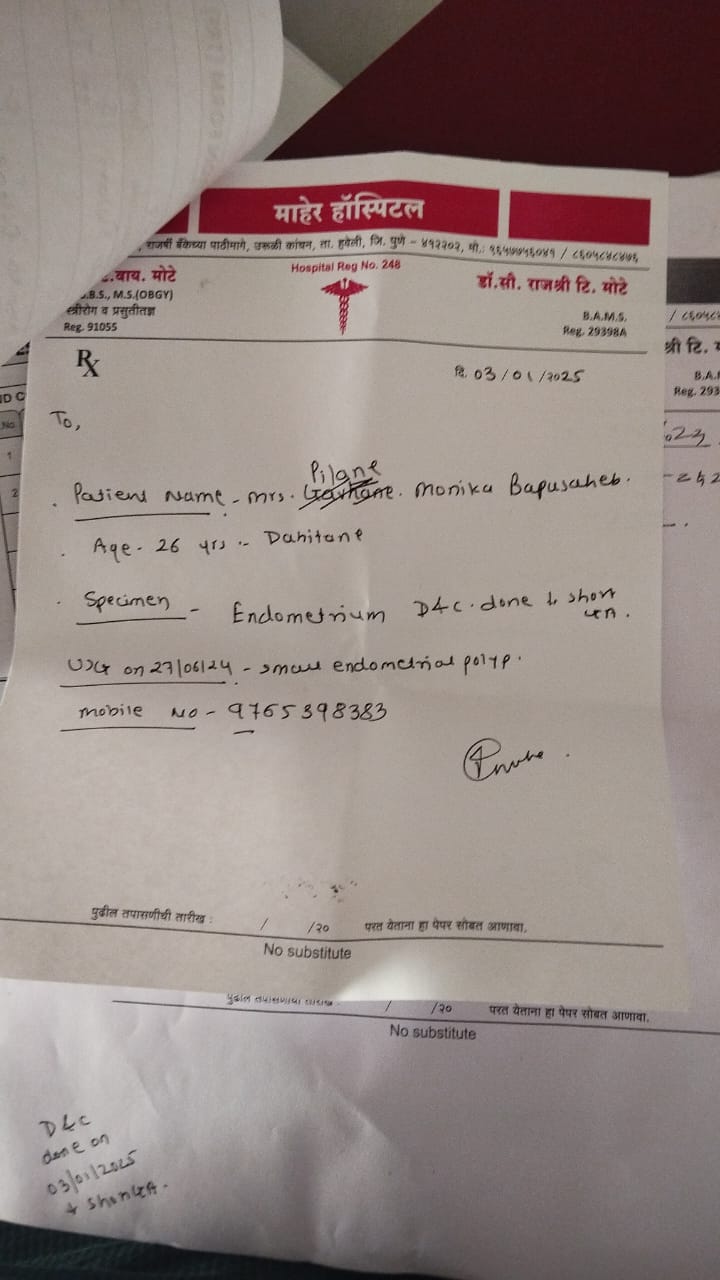 माहेर हॉस्पिटल
राजर्षी बँकेच्या पाठीमागे, उरूळी कांचन, ता. हवेली, जि. पुणे - ४१२२०२, मो.:
Hospital Reg No. 248
.वाय. मोटे
.B.S., M.S.(OBGY)
स्त्रीरोग व प्रसुतीतज्ञ
Reg. 91055
डॉ.सौ. राजश्री टि. मोटे
B.A.M.S.
Reg. 29398A
Rx
दि. 03/01/2025
To,
Pilane
Patient Name - Mrs. Monika Bapusaheb.
Age - 26 yrs :- Dahitane
Specimen - Endometrium D&C. done short GA.
USG on 27/06/24 - small endometrial polyp.
mobile No - 9765398383
पुढील तपासणीची तारीख : / /२० परत येताना हा पेपर सोबत आणावा.
No substitute
पुढील तपासणीची तारीख : / /२० परत येताना हा पेपर सोबत आणावा.
No substitute
D&C
done on
03/01/2025
short GA.
श्री टि.
Reg. 293